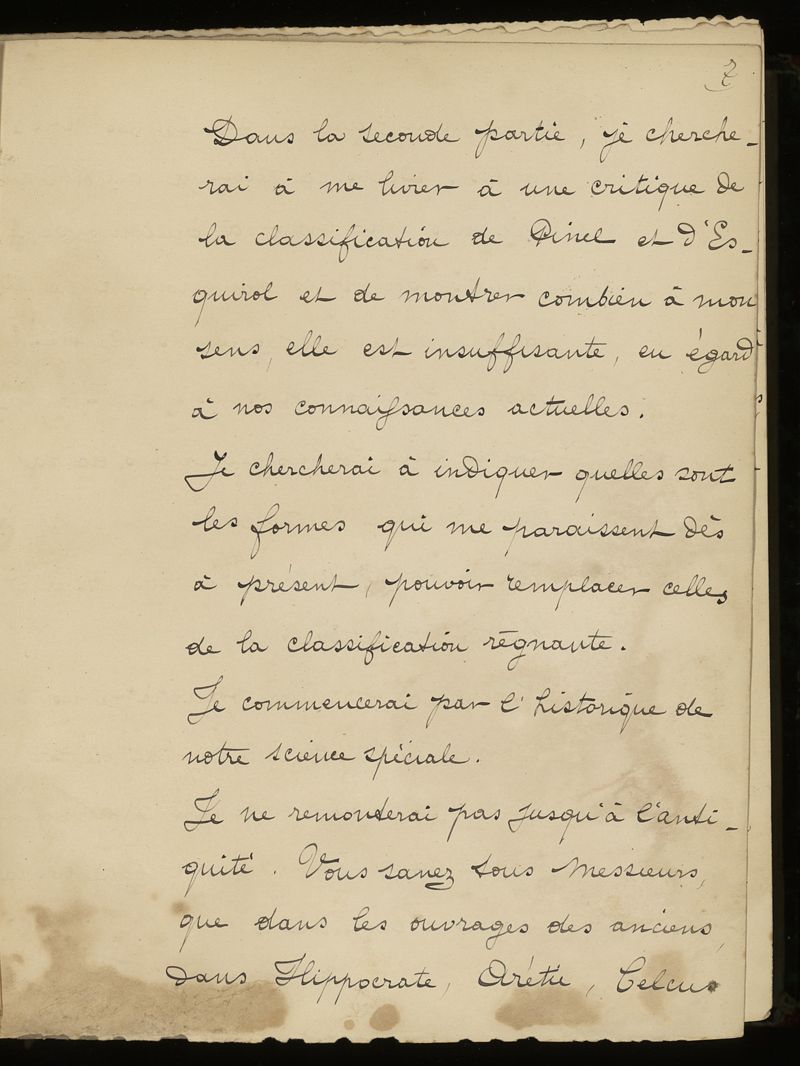 7
Dans la seconde partie, je cherche-
rai à me livrer à une critique de
la classification de Pinel et d'Es-
quirol et de montrer combien à mon
sens, elle est insuffisante, eu égard
à nos connaissances actuelles.
Je chercherai à indiquer quelles sont
les formes qui me paraissent dès
à présent, pouvoir remplacer celles
de la classification régnante.
Je commencerai par l'historique de
notre science spéciale.
Je ne remonterai pas jusqu'à l'anti-
quité. Vous savez tous Messieurs,
que dans les ouvrages des anciens,
dans Hippocrate, Arétée, Celcus